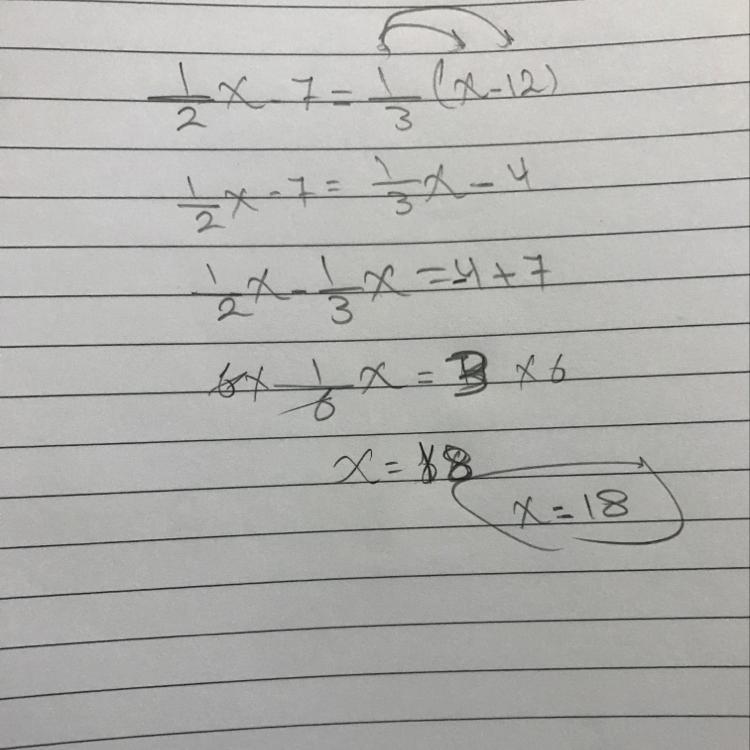 1/2 x - 7 = 1/3 (x - 12)
1/2 x - 7 = 1/3 x - 4
1/2 x - 1/3 x = -4 + 7
6 x 1/6 x = 3 x 6
x = 18
x = 18